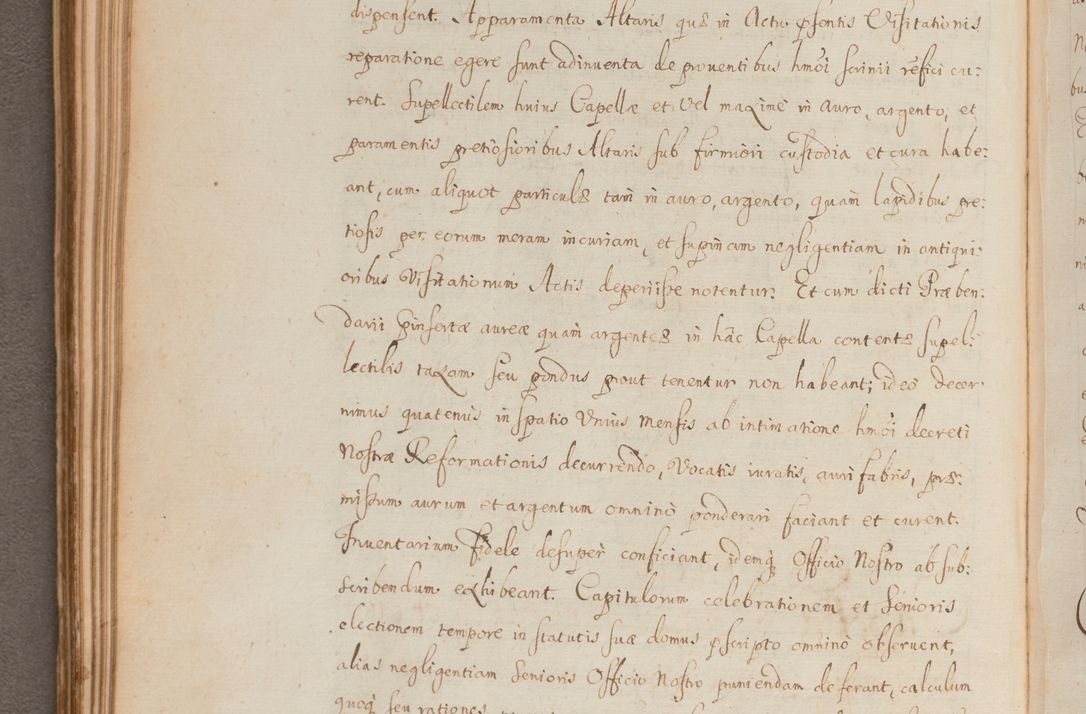 dispensent. Apparamenta Altaris quæ in Actu pñtis Visitationis
reparatione egere sunt adinventa de proventibus hmoi scrinii refici cu:
rent. Supellectilem huius Capellæ et vel maxime in auro, argento, et
paramentis pretiosioribus Altaris sub firmiori custodia et cura habe:
ant, cum aliquot particulæ tam in auro, argento, quam lapidibus pre:
tiosis per eorum meram incuriam, et supinam negligentiam in antiqui:
oribus Visitationum Actis deperiisse notentur. Et cum dicti Præben:
darii insertæ aureæ quam argenteæ in hac Capella contentæ supel:
lectilis taxam seu pondus prout tenentur non habeant; ideo decer
nimus quatenus in spatio Unius Mensis ab intimatione hmoi decreti
Nostræ Reformationis decurrendo, Vocatis iuratis, aurifabris, præ:
missum aurum et argentum omnino ponderari faciant et curent.
Inventarium fidele desuper conficiant, idemq Officio Nostro ab sub:
scribendum exhibeant. Capitulorum celebrationem et Senioris
electionem tempore in statutis suæ domus pscripto omnino observent,
alias negligentiam Senioris Officio Nostro puniendam deferant, calculum
quoq seu rationes